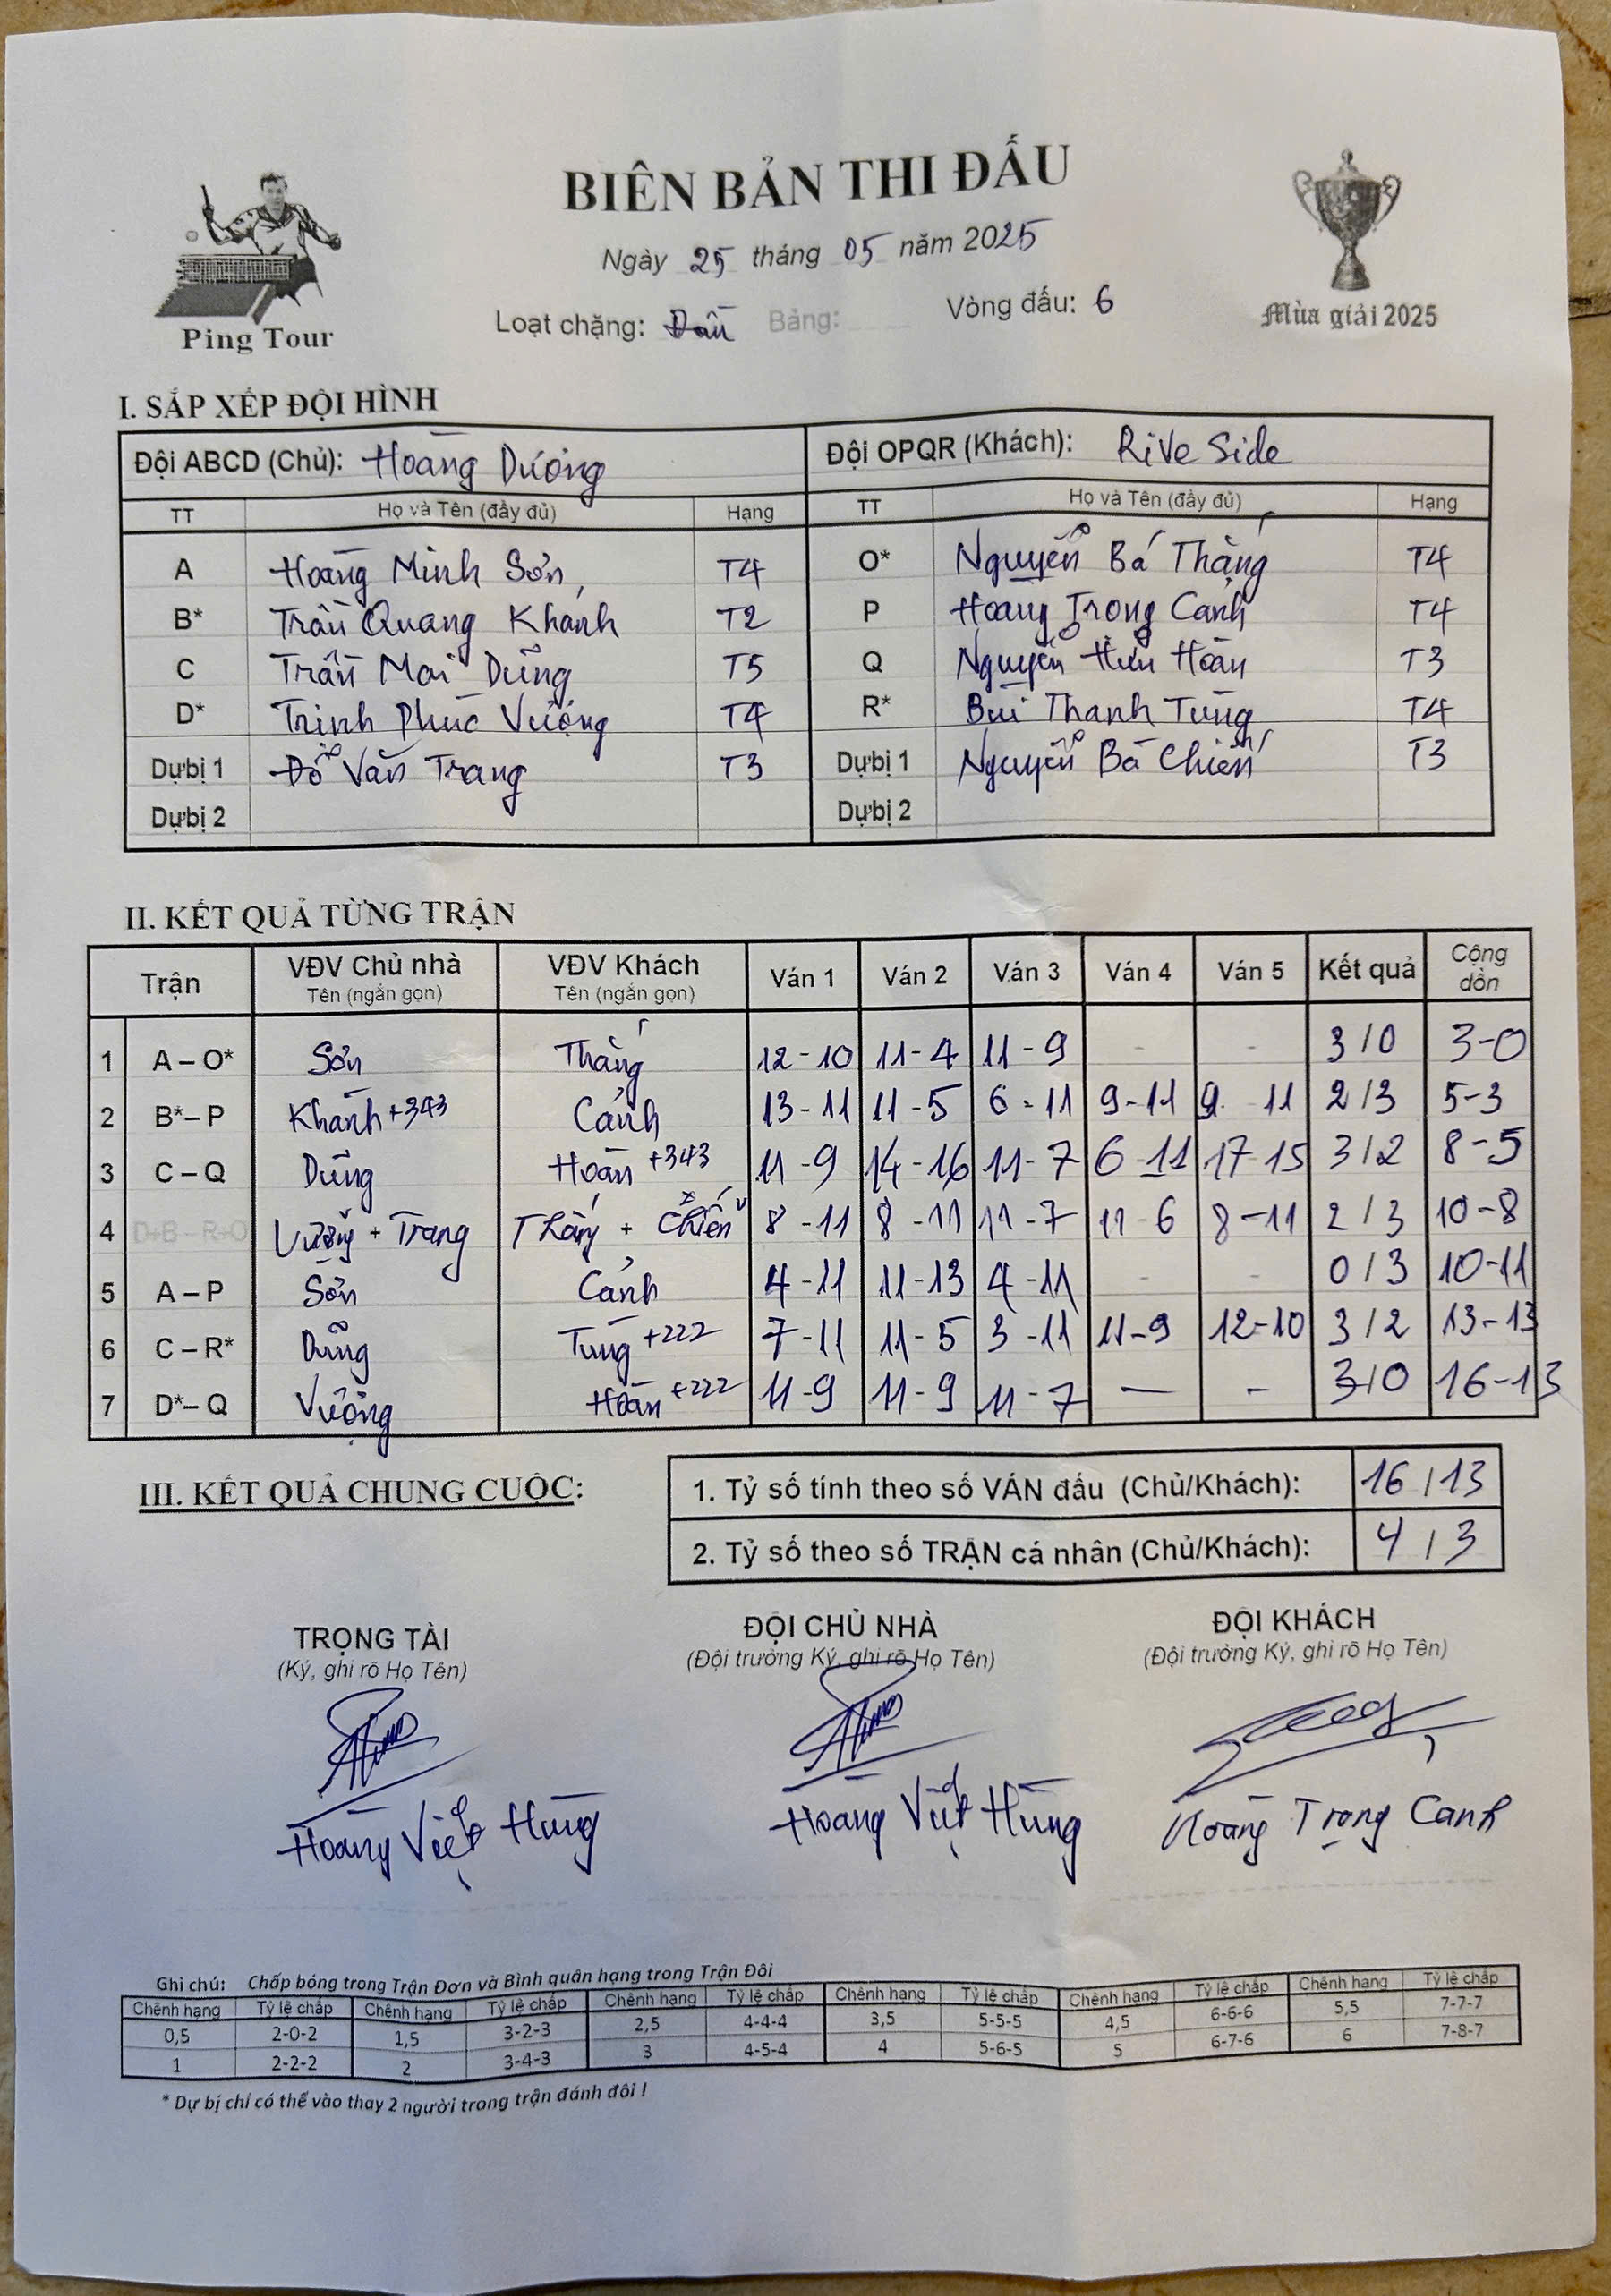 BIÊN BẢN THI ĐẤU
Ngày 25 tháng 05 năm 2025
Loạt chặng: Đầu Bảng: Vòng đấu: 6
Ping Tour
Mùa giải 2025
I. SẮP XẾP ĐỘI HÌNH
Đội ABCD (Chủ): Hoàng Dương Đội OPQR (Khách): Rive Side
TT Họ và Tên (đầy đủ) Hạng TT Họ và Tên (đầy đủ) Hạng
A Hoàng Minh Sơn T4 O* Nguyễn Bá Thắng T4
B* Trần Quang Khánh T2 P Hoàng Trọng Cảnh T4
C Trần Mai Dũng T5 Q Nguyễn Hữu Hoàn T3
D* Trịnh Phúc Vượng T4 R* Bùi Thanh Tùng T4
Dự bị 1 Đỗ Văn Trang T3 Dự bị 1 Nguyễn Bá Chiến T3
Dự bị 2 Dự bị 2
II. KẾT QUẢ TỪNG TRẬN
Trận VĐV Chủ nhà Tên (ngắn gọn) VĐV Khách Tên (ngắn gọn) Ván 1 Ván 2 Ván 3 Ván 4 Ván 5 Kết quả Cộng dồn
1 A – O* Sơn Thắng 12-10 11-4 11-9 - - 3/0 3-0
2 B* – P Khánh +343 Cảnh 13-11 11-5 6-11 9-11 9 11 2/3 5-3
3 C – Q Dũng Hoàn +343 11-9 14-16 11-7 6-11 17-15 3/2 8-5
4 D+B – R+O Vượng + Trang Thắng + Chiến 8-11 8-11 11-7 11-6 8-11 2/3 10-8
5 A – P Sơn Cảnh 4-11 11-13 4-11 - - 0/3 10-11
6 C – R* Dũng Tùng +222 7-11 11-5 3-11 11-9 12-10 3/2 13-13
7 D* – Q Vượng Hoàn +222 11-9 11-9 11-7 — - 3/0 16-13
III. KẾT QUẢ CHUNG CUỘC:
1. Tỷ số tính theo số VÁN đấu (Chủ/Khách): 16/13
2. Tỷ số theo số TRẬN cá nhân (Chủ/Khách): 4/3
TRỌNG TÀI ĐỘI CHỦ NHÀ ĐỘI KHÁCH
(Ký, ghi rõ Họ Tên) (Đội trưởng Ký, ghi rõ Họ Tên) (Đội trưởng Ký, ghi rõ Họ Tên)
Hoàng Việt Hùng Hoàng Việt Hùng Hoàng Trọng Cảnh
Ghi chú: Chấp bóng trong Trận Đơn và Bình quân hạng trong Trận Đôi
Chênh hạng Tỷ lệ chấp Chênh hạng Tỷ lệ chấp Chênh hạng Tỷ lệ chấp Chênh hạng Tỷ lệ chấp Chênh hạng Tỷ lệ chấp Chênh hạng Tỷ lệ chấp
0,5 2-0-2 1,5 3-2-3 2,5 4-4-4 3,5 5-5-5 4,5 6-6-6 5,5 7-7-7
1 2-2-2 2 3-4-3 3 4-5-4 4 5-6-5 5 6-7-6 6 7-8-7
* Dự bị chỉ có thể vào thay 2 người trong trận đánh đôi !